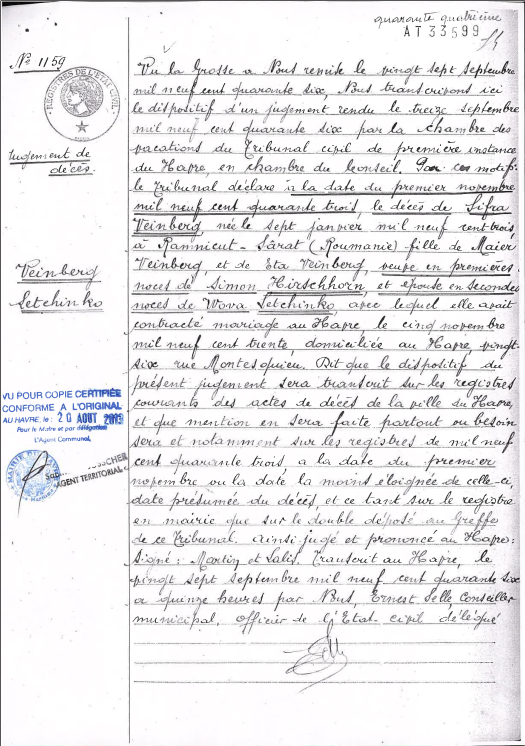 quarante quatrième
AT 33599
N° 1159
REGISTRES DE L'ETAT CIVIL
Jugement de
décès.
Veinberg
Setchinko
VU POUR COPIE CERTIFIÉE
CONFORME A L'ORIGINAL
AU HAVRE, le : 20 AOUT
Pour le Maire et par délégation
L'Agent Communal,
AGENT TERRITORIAL
Vu la Grosse à Nous remise le vingt sept septembre
mil neuf cent quarante six, Nous transcrivons ici
le dispositif d'un jugement rendu le treize septembre
mil neuf cent quarante six par la chambre des
vacations du Tribunal civil de première instance
du Havre, en chambre du Conseil. Par ces motifs:
le Tribunal déclare à la date du premier novembre
mil neuf cent quarante trois, le décès de Sifra
Veinberg, née le sept janvier mil neuf cent trois,
à Ramnicut-Sârat (Roumanie) fille de Maier
Veinberg, et de Eta Veinberg, veuve en premières
noces de Simon Hirschhorn, et épouse en secondes
noces de Wova Setchinko, avec lequel elle avait
contracté mariage au Havre, le cinq novembre
mil neuf cent trente, domiciliée au Havre, vingt-
six rue Montesquieu. Dit que le dispositif du
présent jugement sera transcrit sur les registres
courants des actes de décès de la ville du Havre,
et que mention en sera faite partout où besoin
sera et notamment sur les registres de mil neuf
cent quarante trois, à la date du premier
novembre ou la date la moins éloignée de celle-ci,
date présumée du décès, et ce tant sur le registre
en mairie que sur le double déposé au Greffe
de ce Tribunal. Ainsi jugé et prononcé au Havre:
Signé: Martin et Salis. Transcrit au Havre, le
vingt sept septembre mil neuf cent quarante six
à quinze heures par Nous, Ernest Selle, Conseiller
municipal, Officier de l'Etat-civil délégué